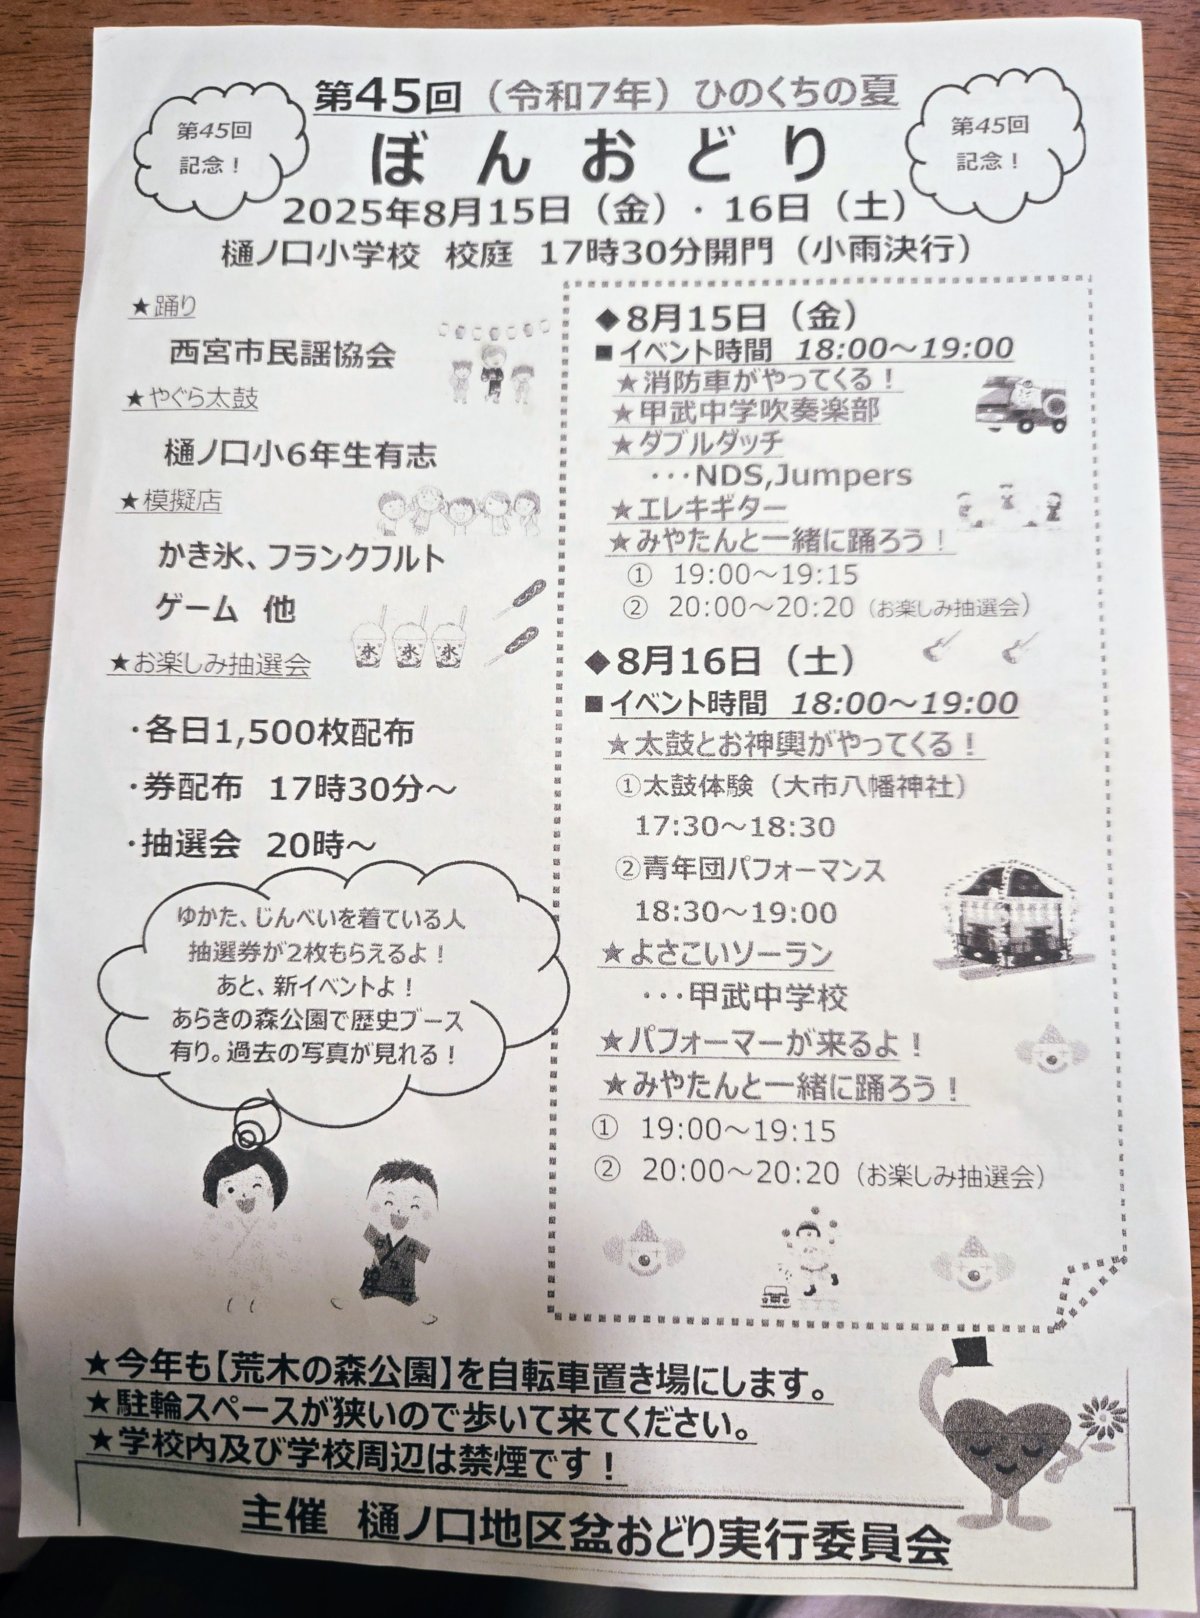 第45回（令和7年）ひのくちの夏
第45回
記念！
第45回
記念！
ぼんおどり
2025年8月15日（金）・16日（土）
樋ノ口小学校 校庭 17時30分開門（小雨決行）
★踊り
西宮市民謡協会
★やぐら太鼓
樋ノ口小6年生有志
★模擬店
かき氷、フランクフルト
ゲーム 他
氷 氷 氷
★お楽しみ抽選会
・各日1,500枚配布
・券配布 17時30分～
・抽選会 20時～
ゆかた、じんべいを着ている人
抽選券が2枚もらえるよ！
あと、新イベントよ！
あらきの森公園で歴史ブース
有り。過去の写真が見れる！
◆8月15日（金）
■イベント時間 18:00～19:00
★消防車がやってくる！
★甲武中学吹奏楽部
★ダブルダッチ
・・・NDS,Jumpers
★エレキギター
★みやたんと一緒に踊ろう！
① 19:00～19:15
② 20:00～20:20（お楽しみ抽選会）
◆8月16日（土）
■イベント時間 18:00～19:00
★太鼓とお神輿がやってくる！
①太鼓体験（大市八幡神社）
17:30～18:30
②青年団パフォーマンス
18:30～19:00
★よさこいソーラン
・・・甲武中学校
★パフォーマーが来るよ！
★みやたんと一緒に踊ろう！
① 19:00～19:15
② 20:00～20:20（お楽しみ抽選会）
★今年も【荒木の森公園】を自転車置き場にします。
★駐輪スペースが狭いので歩いて来てください。
★学校内及び学校周辺は禁煙です！
主催 樋ノ口地区盆おどり実行委員会